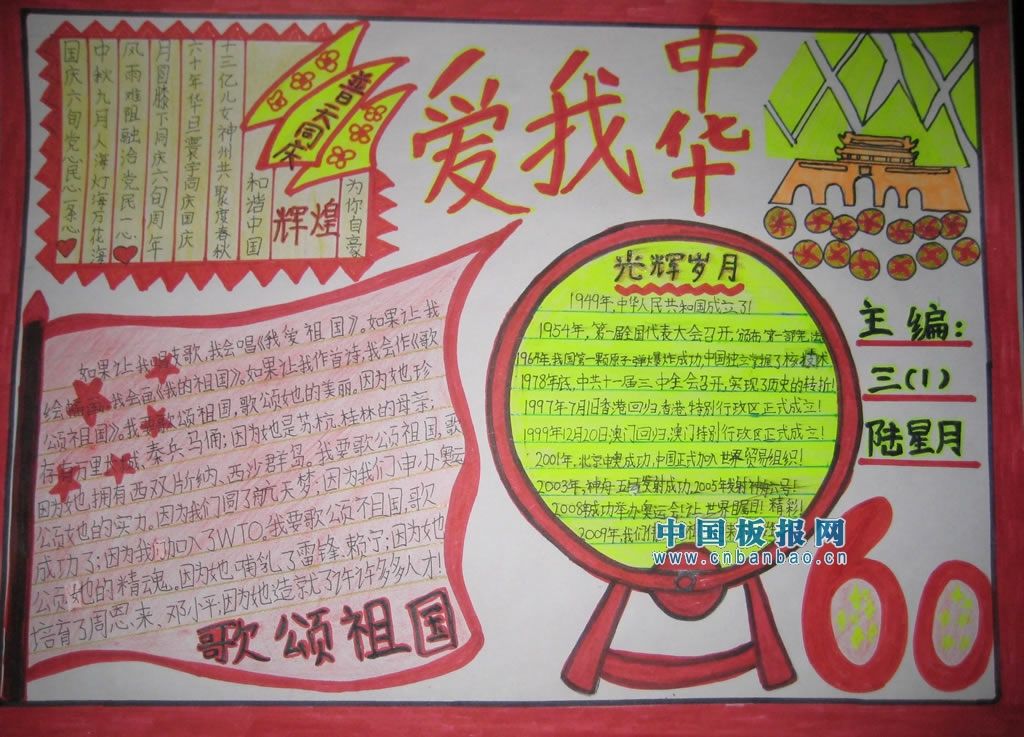 爱我中华
普天同庆
国庆六旬党民心一系
中秋九月人海灯海万花海
风雨难阻融洽党民一心
月圆膝下同庆六旬周年
六十年华旦寰宇高庆国庆
十三亿儿女神州共聚度春秋
和谐中国
辉煌
为你自豪
如果让我唱支歌,我会唱《我爱祖国》。如果让我
绘幅画,我会画《我的祖国》。如果让我作首诗,我会作《歌
颂祖国》。我要歌颂祖国,歌颂她的美丽。因为她珍
存有万里长城、秦兵马俑;因为她是苏杭、桂林的母亲;
因为她拥有西双片纳、西沙群岛。我要歌颂祖国,歌
颂她的实力。因为我们圆了航天梦;因为我们申办奥运
成功了;因为我们加入了WTO。我要歌颂祖国,歌
颂她的精魂。因为她哺乳了雷锋、赖宁;因为她
培育了周恩来、邓小平;因为她造就了许许多多人才!
歌颂祖国
光辉岁月
1949年,中华人民共和国成立了!
1954年,第一届全国代表大会召开,颁布第一部宪法
1964年我国第一颗原子弹爆炸成功,中国独立掌握了核技术
1978年底,中共十一届三中全会召开,实现了历史的转折!
1997年7月1日香港回归,香港特别行政区正式成立!
1999年12月20日澳门回归,澳门特别行政区正式成立!
2001年,北京申奥成功,中国正式加入世界贸易组织!
2003年,神舟五号发射成功,2005年发射神舟六号!
2008年成功举办奥运会!让世界瞩目!精彩!
2009年,我们
主编:
三(1)
陆星月
60
中国板报网
www.cnbanbao.cn